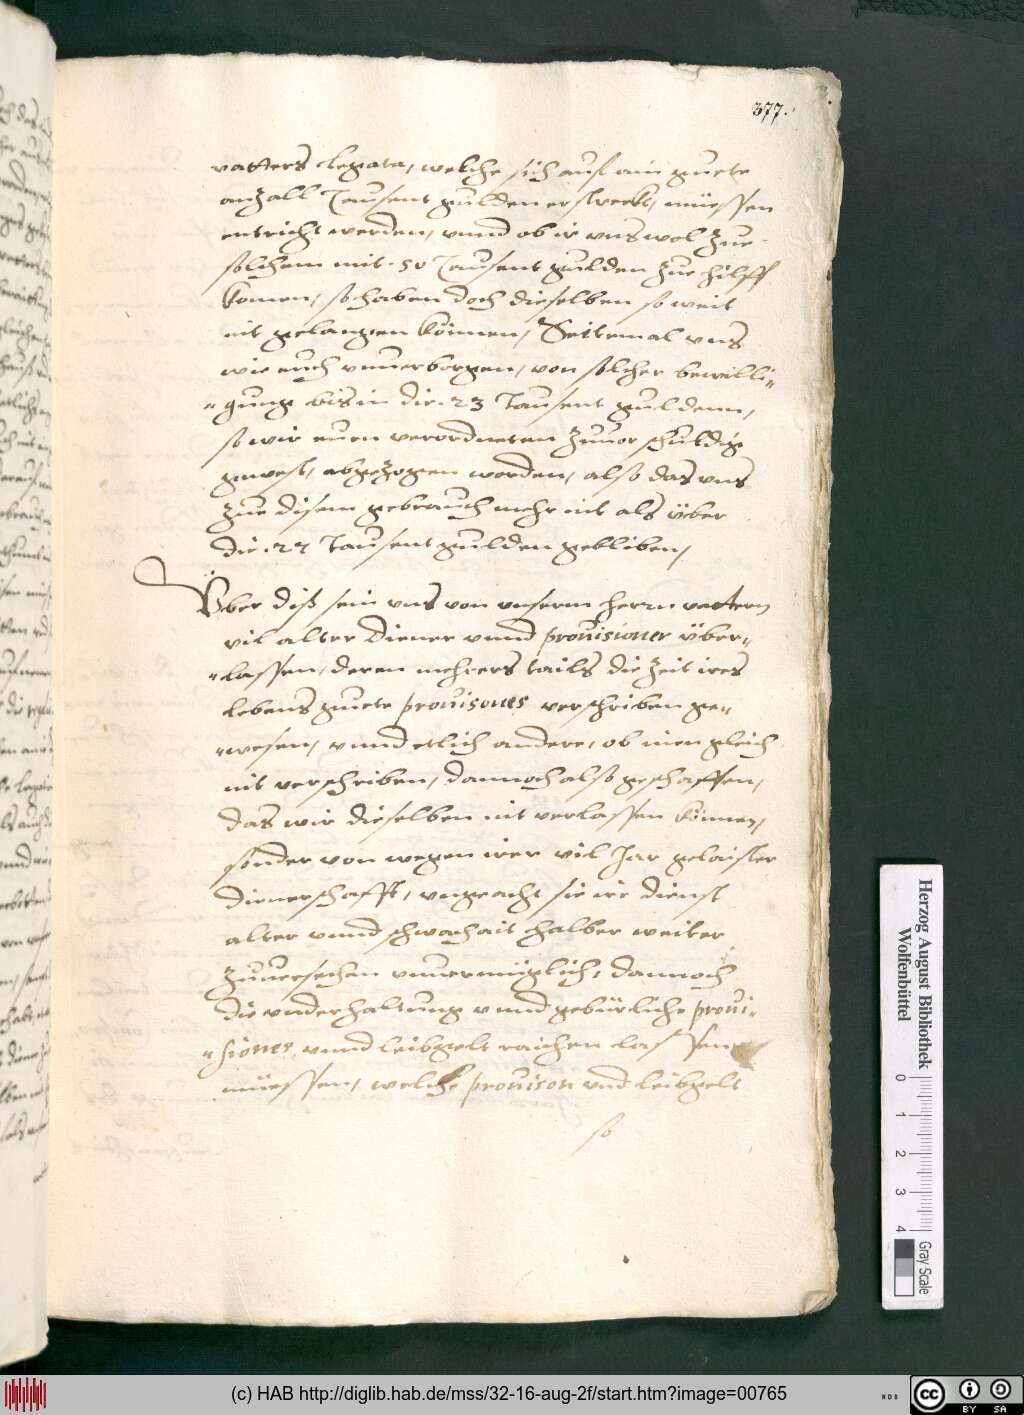 377.
vatters legata, welche sich auf ain guete
anzall Tausent gulden erstreckt, müessen
entricht werden, vnnd ob ir vns wol zue
solchem mit .50 Tausent gulden zue hilff
komen, so haben doch dieselben so weit
nit gelangen können, Seitemal vns
wie euch vnuerborgen, von solcher bewilli-
gung bis in die .23 Tausent guldenn,
so wir euern verordneten zuuor schuldig
gwest, abgezogen worden, also das vns
zue disem gebrauch mehr nit als über
die .27 Tausent gulden gebliben,
Über diß sein vns von vnserm herrn vattern
vil alter Diener vnnd prouisioner über-
lassen, deren mehrers tails die zeit ires
lebens guete prouisones verschriben ge-
wesen, vnnd etlich andere, ob inen gleich
nit verschriben, dannoch also geschaffen,
das wir dieselben nit verlassen können,
sonder von wegen irer vil Jar gelaister
dienerschafft, vngeacht sie ire dienst
alter vnnd schwachait halber weiter
zuuersechen vnuermüglich, dannoch
die vnderhaltung vnnd gebürliche proui-
siones vnnd leibgelt raichen lassen
müessen, welche prouison vnd leibgelt
so
Herzog August Bibliothek
Wolfenbüttel
0 1 2 3 4
Gray Scale
(c) HAB http://diglib.hab.de/mss/32-16-aug-2f/start.htm?image=00765
WDB
cc BY SA